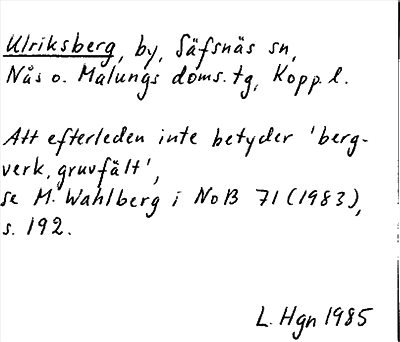 Ulriksberg, by, Säfsnäs sn,
Nås o. Malungs doms. tg, Kopp. l.
Att efterleden inte betyder 'berg-
verk, gruvfält',
se M. Wahlberg i NoB 71 (1983),
s. 192.
L. Hgn 1985